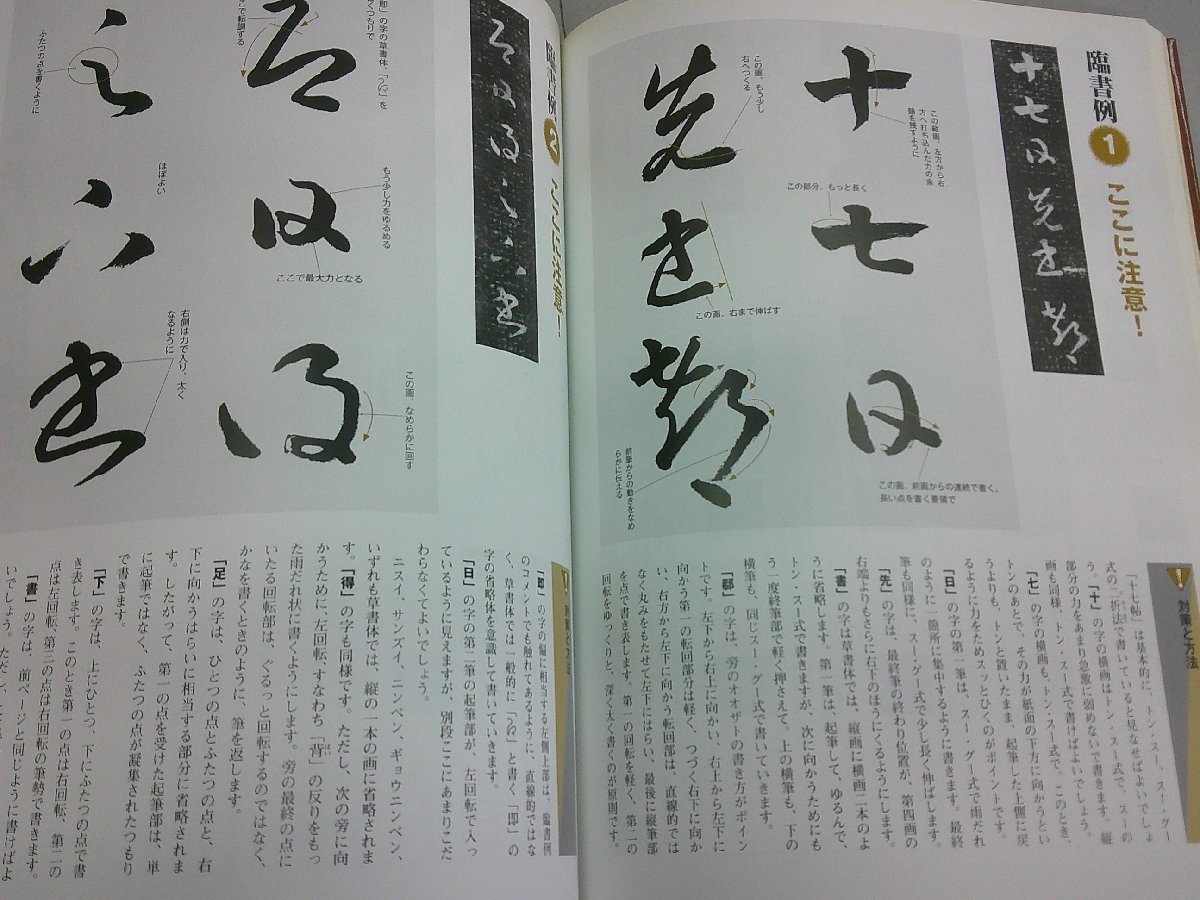 臨書例
1
ここに注意!
十七日先書郗
十
七
日
先
書
郗
この縦画、左方から右
方へ打ち込んだ力の余
韻を残すように
この部分、もっと長く
この画、前画からの連続で書く。
長い点を書く要領で
この画、もう少し
右へつくる
この画、右まで伸ばす
前筆からの動きをなめ
らかに伝える
対策と方法
『十七帖』は基本的に、トン・スー、スー・グー
式の二折法で書いていると見なせばよいでしょ
う。「十」の字の横画はトン・スー式で、スーの
部分の力をあまり急激に弱めないで書きます。縦
画も同様、トン・スー式で書けばよいでしょう。
「七」の字の横画も、トン・スー式で、このとき、
トンのあとで、その力が紙面の下方に向かうとい
うよりも、トンと置いたまま、起筆した上側に戻
るように力をためスッとひくのがポイントです。
「日」の字の第一筆は、スー・グー式で雨だれ
のように一箇所に集中するように書きます。最終
筆も同様に、スー・グー式で少し長く伸ばします。
「先」の字は、最終筆の終わり位置が、第四画の
右端よりもさらに右下のほうにくるようにします。
「書」の字は草書体では、縦画に横画二本のよ
うに省略します。第一筆は、起筆して、ゆるんで、
トン・スー式で書きますが、次に向かうためにも
う一度終筆部で軽く押さえて。上の横筆も、下の
横筆も、同じスー・グー式で書いていきます。
「郗」の字は、旁のオオザトの書き方がポイン
トです。左下から右上に向かい、右上から左下に
向かう第一の転回部分は軽く、つづく右下に向か
い、右方から左下に向かう転回部は、直線的では
なく丸みをもたせて左下にはらい、最後に縦筆部
を点で書き表します。第一の回転を軽く、第二の
回転をゆっくりと、深く太く書くのが原則です。
臨書例
2
ここに注意!
即日得足下書
日
得
足
下
書
即」の字の草書体、「
くつもりで
で転調する
もう少し力をゆるめる
ここで最大力となる
この画、なめらかに回す
ふたつの点を書くように
ほぼよい
右側は力で入り、太く
なるように
対策と方法
「即」の字の偏に相当する左側上部は、臨書例
のコメントでも触れてあるように、直線的ではな
く、草書体では一般的に「
」と書く「即」の
字の省略体を意識して書いていきます。
「日」の字の第二筆の起筆部が、左回転で入っ
ているように見えますが、別段ここにあまりこだ
わらなくてよいでしょう。
ニスイ、サンズイ、ニンベン、ギョウニンベン、
いずれも草書体では、縦の一本の画に省略されま
す。「得」の字も同様です。ただし、次の旁に向
かうために、左回転、すなわち「背」の反りをもっ
た雨だれ状に書くようにします。旁の最終の点に
いたる回転部は、ぐるっと回転するのではなく、
かなを書くときのように、筆を返します。
「足」の字は、ひとつの点とふたつの点と、右
下に向かうはらいに相当する部分に省略されま
す。したがって、第一の点を受けた起筆部は、単
に起筆ではなく、ふたつの点が凝集されたつもり
で書きます。
「下」の字は、上にひとつ、下にふたつの点で書
き表します。このとき第一の点は右回転、第二の
点は左回転、第三の点は右回転の筆勢で書きます。
「書」の字は、前ページと同じように書けばよ
いでしょう。ただし、